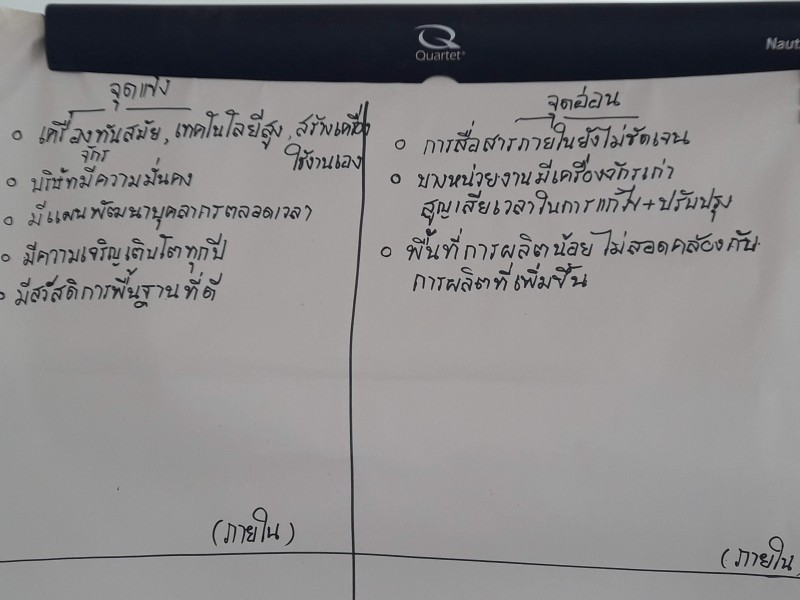 Quartet
Naut
จุดแข็ง
เครื่องทันสมัย, เทคโนโลยีสูง, สร้างเครื่อง
จักร
ใช้งานเอง
บริษัทมีความมั่นคง
มีแผนพัฒนาบุคลากรตลอดเวลา
มีความเจริญเติบโตทุกปี
มีสวัสดิการพื้นฐานที่ดี
(ภายใน)
จุดอ่อน
การสื่อสารภายในยังไม่ชัดเจน
บางหน่วยงานมีเครื่องจักรเก่า
สูญเสียเวลาในการแก้ไข+ปรับปรุง
พื้นที่การผลิตน้อย ไม่สอดคล้องกับ
การผลิตที่เพิ่มขึ้น
(ภายใน)